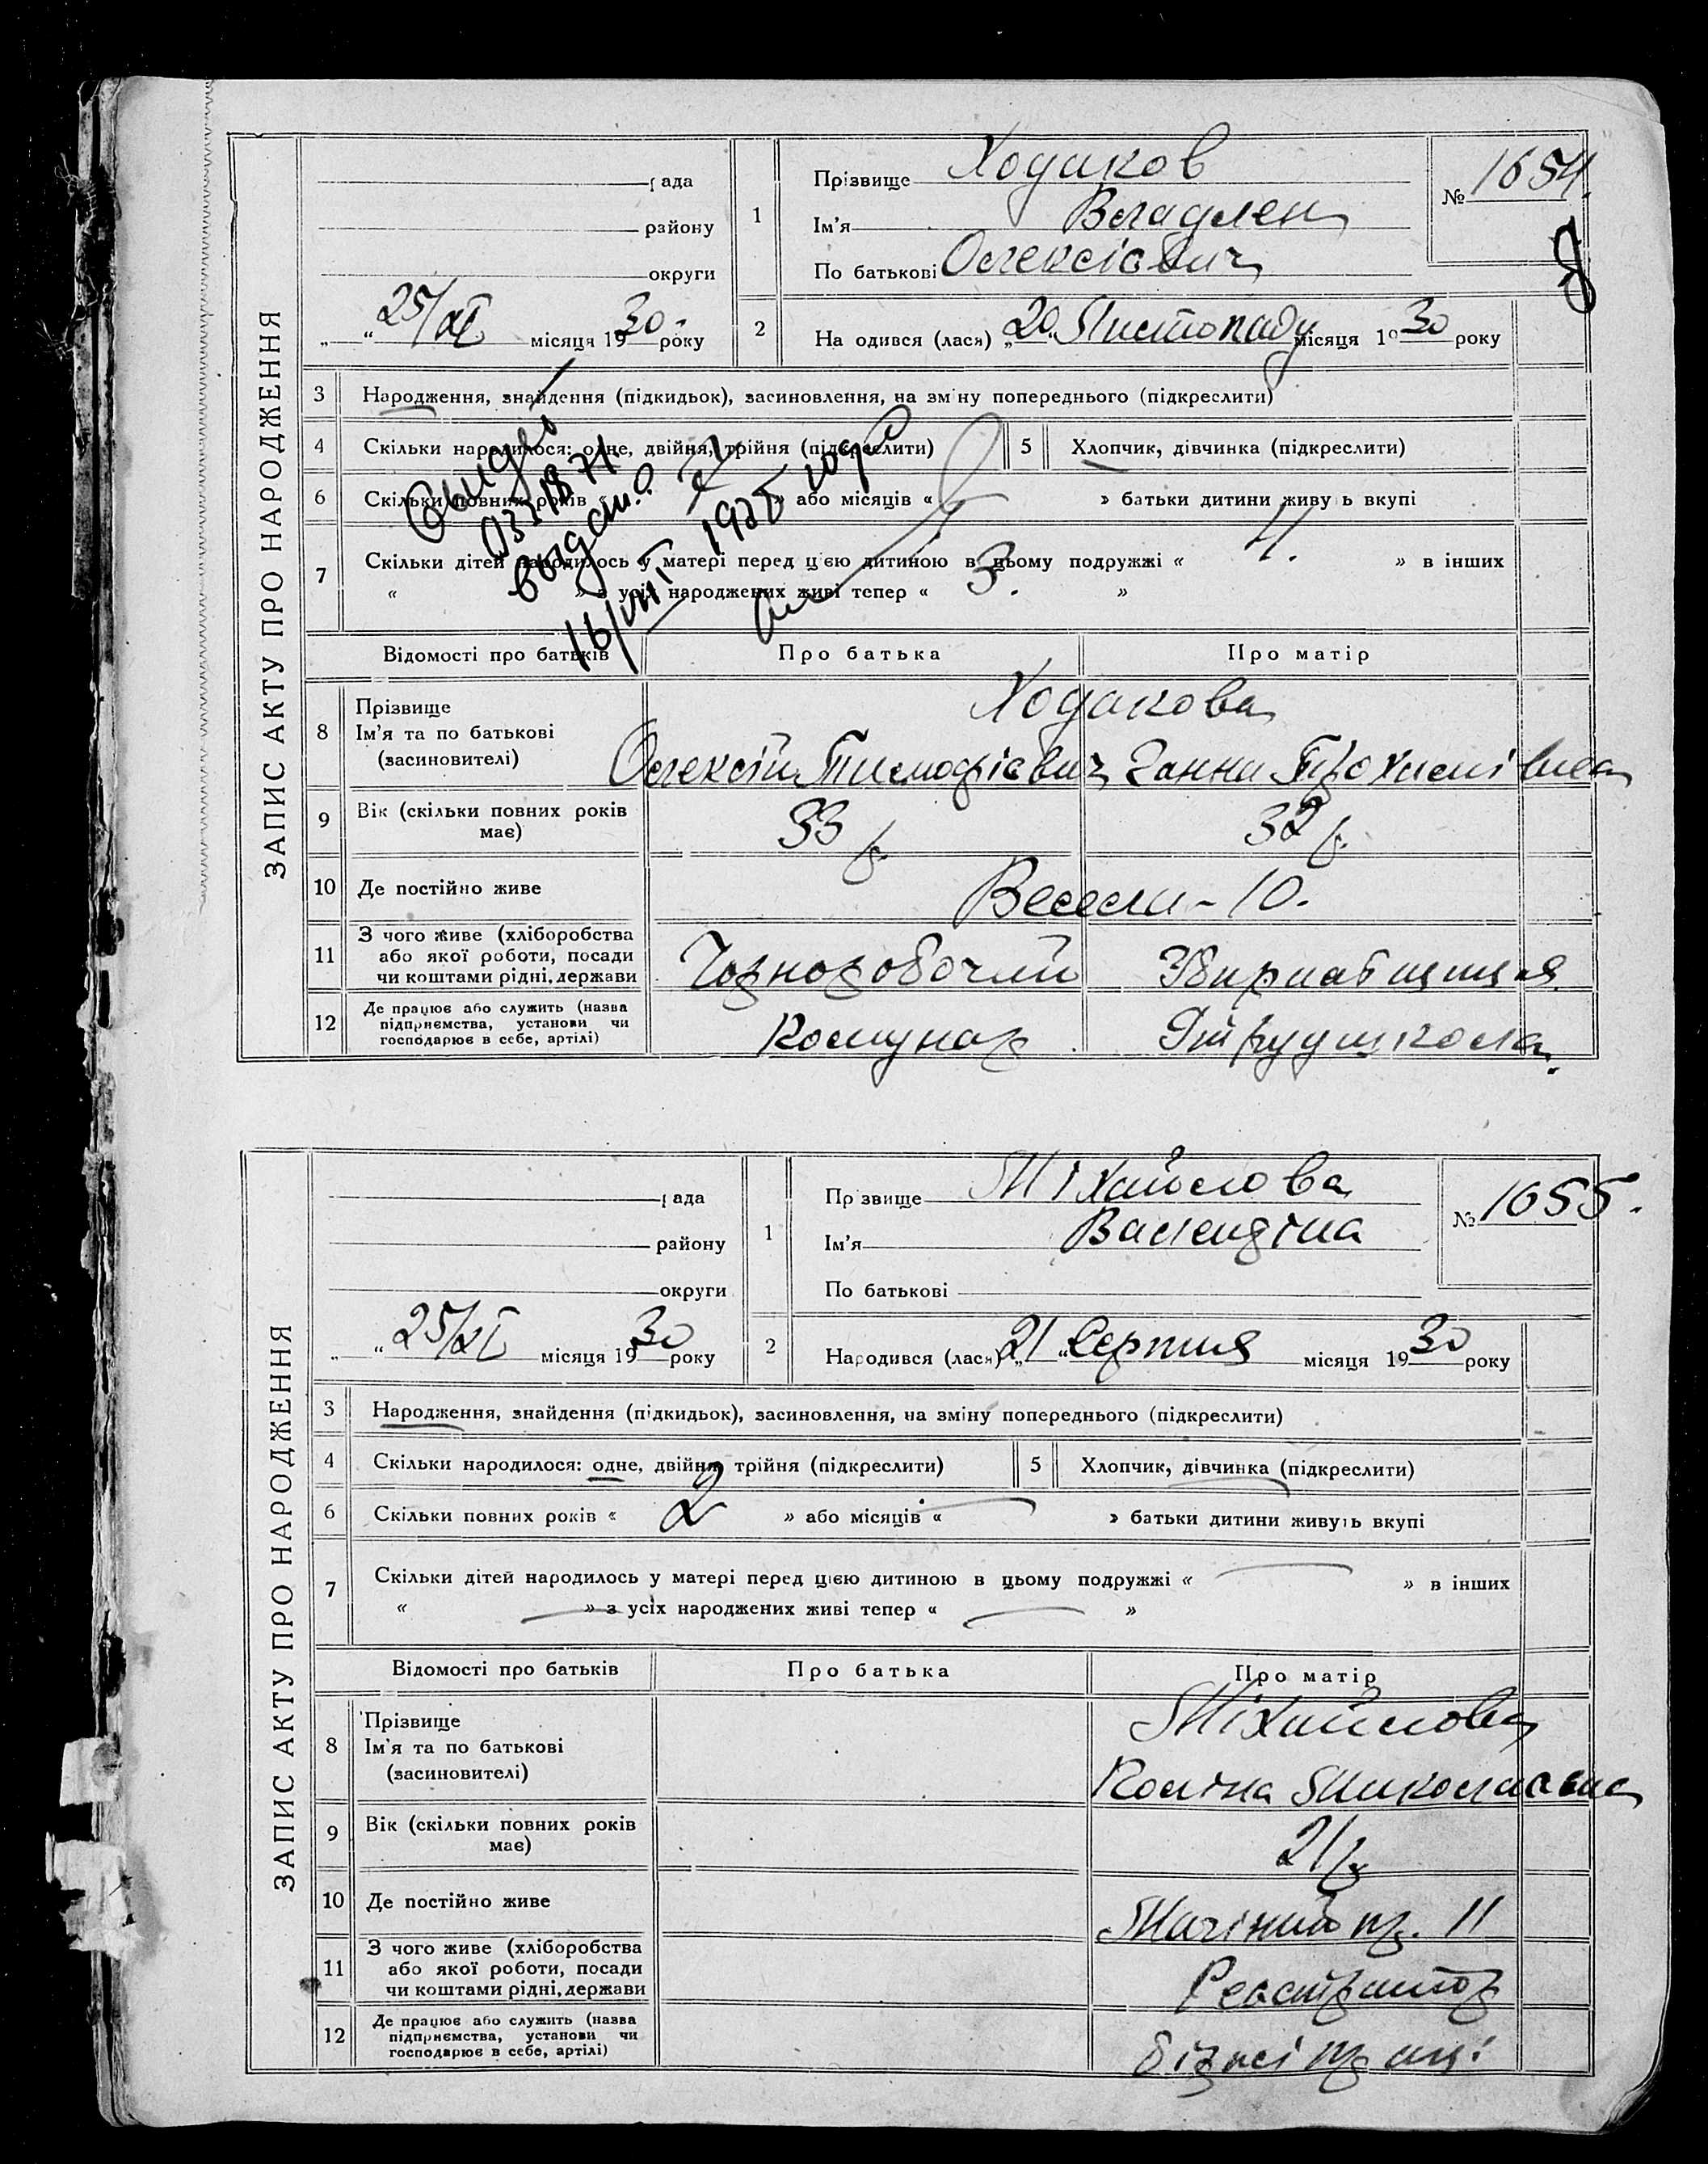 ЗАПИС АКТУ ПРО НАРОДЖЕННЯ
рада
району
округи
"25/XI" місяця 1930 року
1
Прізвище Ходаков
Ім'я Владлен
По батькові Олексієвич
№ 1654.
2
На одився (лася) "20" Листопаду місяця 1930 року
3 Народження, знайдення (підкидьок), засиновлення, на зміну попереднього (підкреслити)
4 Скільки народилося: одне, двійня, трійня (підкреслити)
5 Хлопчик, дівчинка (підкреслити)
6 Скільки повних років « » або місяців « » батьки дитини живуть вкупі
7 Скільки дітей народилось у матері перед цією дитиною в цьому подружжі « 4. » в інших
« » з усіх народжених живі тепер « 3. »
выдан.
16/VIII 1955 года
Відомості про батьків
Про батька
Про матір
8 Прізвище
Ім'я та по батькові
(засиновителі)
Ходакова
Олексій Тимофієвич Ганна Трохимівна
9 Вік (скільки повних років має) 33 р. 32 р.
10 Де постійно живе Весела - 10.
11 З чого живе (хліборобства або якої роботи, посади чи коштами рідні, держави Чорноробочий Збиральщиця
12 Де працює або служить (назва підприємства, установи чи господарює в себе, артілі) Комунар Трудшкола.
ЗАПИС АКТУ ПРО НАРОДЖЕННЯ
рада
району
округи
"25/XI" місяця 1930 року
1
Прізвище Міхайлова
Ім'я Валендіна
По батькові
№ 1655.
2
Народився (лася) "21" Серпня місяця 1930 року
3 Народження, знайдення (підкидьок), засиновлення, на зміну попереднього (підкреслити)
4 Скільки народилося: одне, двійня, трійня (підкреслити)
5 Хлопчик, дівчинка (підкреслити)
6 Скільки повних років « 2 » або місяців « — » батьки дитини живуть вкупі
7 Скільки дітей народилось у матері перед цією дитиною в цьому подружжі « — » в інших
« — » з усіх народжених живі тепер « — »
Відомості про батьків
Про батька
Про матір
8 Прізвище
Ім'я та по батькові
(засиновителі)
Міхайлова
Миколаєвна
9 Вік (скільки повних років має) 21 р.
10 Де постійно живе пр. 11
11 З чого живе (хліборобства або якої роботи, посади чи коштами рідні, держави Реєстратор
12 Де працює або служить (назва підприємства, установи чи господарює в себе, артілі) біржі праці